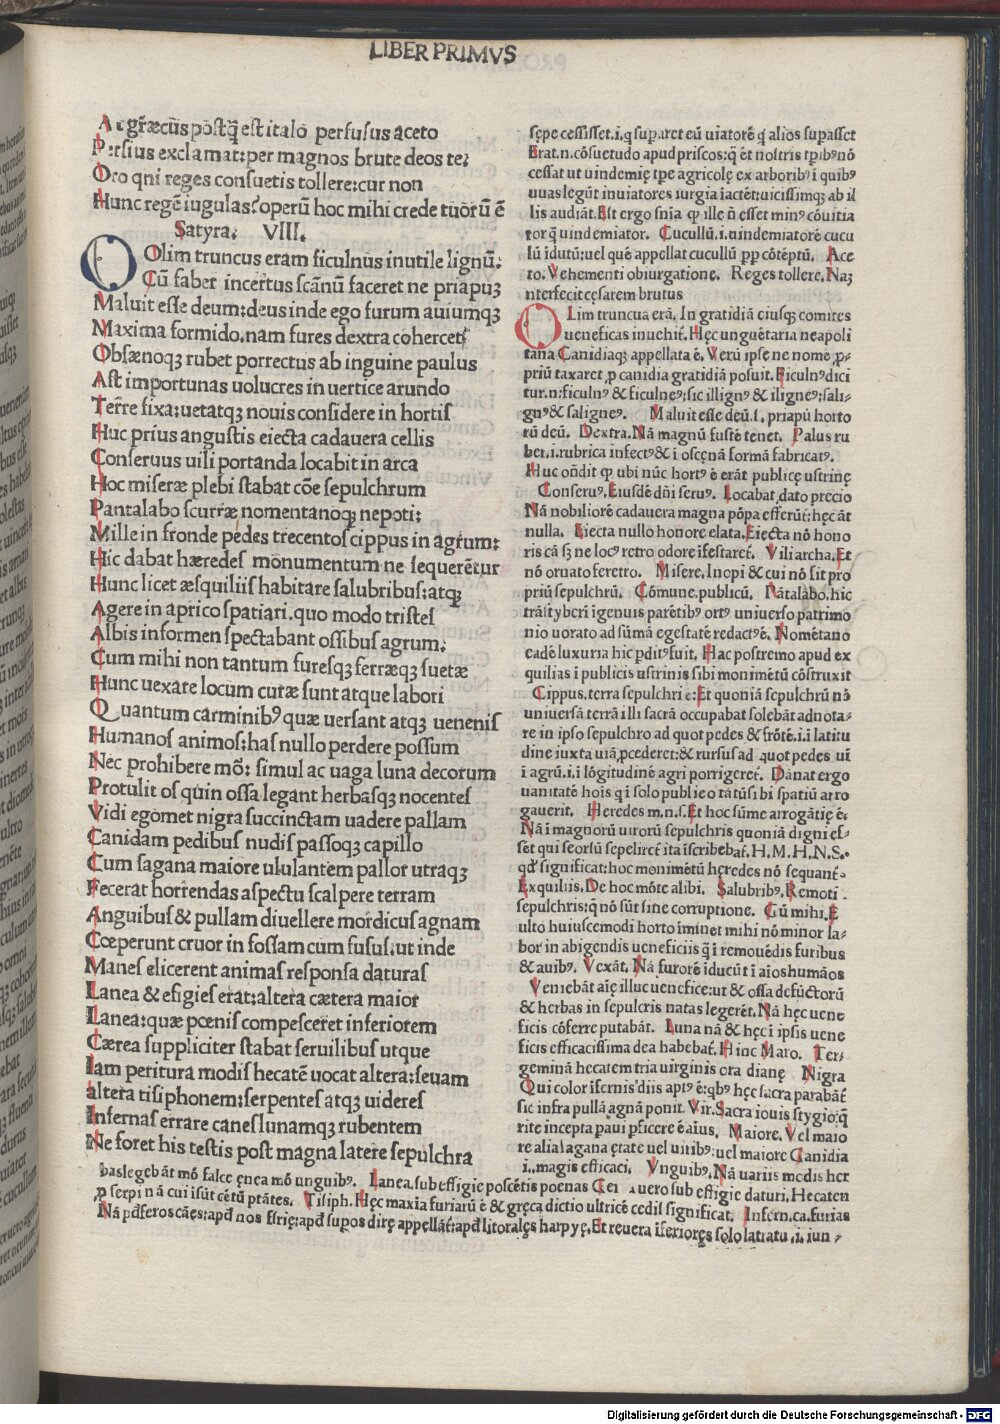 LIBER PRIMVS
At græcus postq̃ est italo perfusus aceto
Persius exclamat: per magnos brute deos te:
Oro qni reges consuetis tollere: cur non
Hunc regē iugulas? operū hoc mihi crede tuorū ē
Satyra. VIII.
OLim truncus eram ficulnus inutile lignū:
Cū faber incertus scānū faceret ne priapūꝫ
Maluit esse deum: deus inde ego furum auiumqꝫ
Maxima formido. nam fures dextra cohercet
Obsænoqꝫ rubet porrectus ab inguine paulus
Ast importunas uolucres in uertice arundo
Terrē fixa: uetatqꝫ nouis considere in hortis
Huc prius angustis eiecta cadauera cellis
Conseruus uili portanda locabit in arca
Hoc miseræ plebi stabat cōe sepulchrum
Pantalabo scurræ nomentanoqꝫ nepoti:
Mille in fronde pedes trecentos cippus in agrum:
Hic dabat hæredes monumentum ne sequerētur
Hunc licet æsquiliis habitare salubribus: atqꝫ
Agere in aprico spatiari. quo modo tristes
Albis informen spectabant ossibus agrum:
Cum mihi non tantum furesqꝫ ferræqꝫ suetæ
Hunc uexare locum curæ sunt atque labori
Quantum carminibꝰ quæ uersant atqꝫ uenenis
Humanos animos: has nullo perdere possum
Nec prohibere mō: simul ac uaga luna decorum
Protulit os quin ossa legant herbasqꝫ nocentes
Vidi egomet nigra succinctam uadere pallam
Canidam pedibus nudis passoqꝫ capillo
Cum sagana maiore ululantem pallor utraqꝫ
Fecerat horrendas aspectu scalpere terram
Anguibus & pullam diuellere mordicus agnam
Cœperunt cruor in fossam cum fusus. ut inde
Manes elicerent animas responsa daturas
Lanea & efigies erat: altera cætera maior
Lanea: quæ pœnis compesceret inferiorem
Cærea suppliciter stabat seruilibus utque
Iam peritura modis hecatē uocat altera: seuam
altera tisiphonem: serpentes atqꝫ uideres
Infernas errare canes lunamqꝫ rubentem
Ne foret his testis post magna latere sepulchra
sępe cessisset. i. q suparet eū uiatorē q̇ alios supasset
Erat. n. cōsuetudo apud priscos: q̃ ēt nostris tpibꝰ nō
cessat ut uindemię tpe agricolę ex arboribꝰ i quibꝰ
uuas legūt inuiatores iurgia iactēt: uicissimqꝫ ab il
lis audiāt. Est ergo snia qp ille n̄ esset minꝰ cōuitia
tor q̃ uindemiator. Cucullū. i. uindemiatorē cucu
lū idutū: uel quē appellat cucullū pp cōtēptū. Ace
to. Vehementi obiurgatione. Reges tollere. Naꝫ
nterfecit cęsarem brutus
OLim truncua erā. In gratidiā eiusqꝫ comites
ueneficas inuehit̃. Hęc unguētaria neapoli
tana Canidiaqꝫ appellata ē. Verū ipse ne nomē ꝓ⸗
priū taxaret ꝓ canidia gratidiā posuit. Ficulnꝰ dici
tur. n: ficulnꝰ & ficulneꝰ: sic illignꝰ & iligneꝰ: sali⸗
gnꝰ & saligneꝰ. Maluit esse deū. s. priapū horto
rū deū. Dextra. Nā magnū fustē tenet. Palus ru
bet. i. rubrica infectꝰ & i oscęnā formā fabricatꝰ.
Huc on̄dit qp ubi nūc hortꝰ ē erāt publicę ustrinę
Conseruꝰ. Eiusdē dn̄i seruꝰ. Locabat. dato precio
Nā nobiliorē cadauera magna pōpa efferūt̃: hęc āt
nulla. Eiecta nullo honore elata. Eięcta nō hono
ris cā sꝫ ne locꝰ retro odore ifestaret̃. Vili archa. Et
nō ornato feretro. Misere. Inopi & cui nō sit pro
priū sepulchrū. Cōmune. publicū. Nātalabo. hic
trāstyberi igenuis parētibꝰ ortꝰ uniuerso patrimo
nio uorato ad sūmā egestatē redactꝰ ē. Nomētano
eadē luxuria hic pditꝰ fuit. Hac postremo apud ex
quilias i publicis ustrinis sibi monimētū cōstruxit
Cippus. terra sepulchri ē: Et quoniā sepulchrū nō
uniuersā terrā illi sacrā occupabat solebāt adnota⸗
re in ipso sepulchro ad quot pedes & frōtē. i. i latitu
dine iuxta uiā ꝓcederet: & rursus ad quot pedes uī
i agrū. i. i lōgitudinē agri porrigeret̃. Dānat ergo
uanitatē hois q i solo publico tātū sibi spatiū arro
gauerit. Heredes m. n. s. Et hoc sūme arrogātię ē:
Nā i magnorū uirorū sepulchris quoniā digni es⸗
set qui seorsū sepelirēt̃ ita īscribebat̃. H. M. H. N. S.
qd̓ significat: hoc monimētū hęredes nō sequant̃.
Exquiliis. De hoc mōte alibi. Salubribꝰ. Remoti
sepulchris: q nō sūt sine corruptione. Cū mihi. E
ulto huiuscemodi horto iminet mihi nō minor la⸗
bor in abigendis ueneficiis q̃ i remouēdis furibus
& auibꝰ. Vexāt. Nā furorē iducūt i aios humāos
Veniebāt aię illuc uenefice: ut & ossa defūctorū
& herbas in sepulcris natas legerēt. Nā hęc uene
ficis cōferre putabāt. Luna nā & hęc i ipsis uene
ficis efficacissima dea habebat̃. Hinc Maro. Ter⸗
geminā hecatem tria uirginis ora dianę Nigra
Qui color ifernis diis aptꝰ ē: qbꝰ hęc sacra parabāt̃
sic infra pullā agnā ponit. Vir. Sacra ioui stygio: q̃
rite incepta paui pficere ē aīus. Maiore. Vel maio
re alia lagana ętate uel uiribꝰ: uel maiore Canidia
i. magis efficaci. Vnguibꝰ. Nā uariis modis her
bas legebāt mō falce ęnea mō unguibꝰ. Lanea. sub effigie poscētis poenas Cerea uero sub effigie daturi. Hecaten
ꝓserpinā cui isūt cētū ptātes. Tisiph. Hęc maxīa furiarū ē & gręca dictio ultricē cędis significat. Infern. ca. furias
Nā pd̓feros cāęs: apd̓ nos Estrię: apd̓ supos dirę appellāt̃: apd̓ litorales harpyę. Et reuera iferiores solo latratu. i. iun⸗
Digitalisierung gefördert durch die Deutsche Forschungsgemeinschaft - DFG